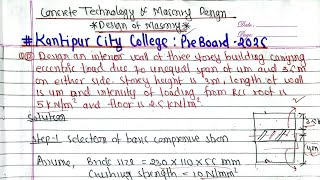 Concrete Technology & Masonry Design
*Design of Masonry*
Date:
Page:
# Kantipur City College: Pre Board-2025
Design an interior wall of three storey building carrying
eccentric load due to unequal span of 4m and 3.5m
on either side. Storey height is 3m. length of wall
is 4m and intensity of loading from RCC roof is
5 kN/m² and floor is 2.5 kN/m²
Solution
Step-1 Selection of basic compressive
Assume, Brick size = 230 x 110 x 55 mm
Crushing strength = 10 N/mm²
3.5m
4m